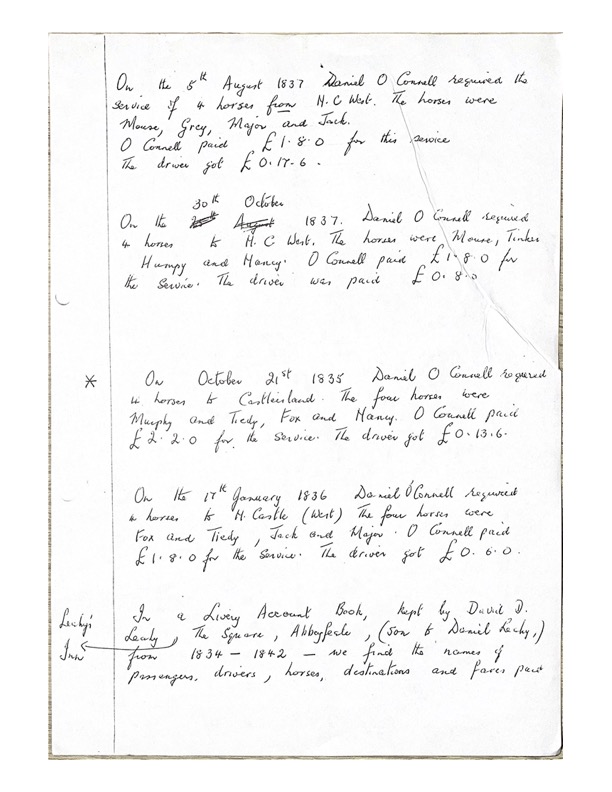 On the 5th August 1837 Daniel O Connell required the
service of 4 horses from N.C West. The horses were
Mouse, Grey, Major and Jack.
O Connell paid £1.8.0 for this service
The driver got £0.17.6.
30th October
On the 1837. Daniel O Connell required
4 horses to N.C West. The horses were, Mouse, Tinker
Humpy and Nancy. O Connell paid £1.8.0 for
the service. The driver was paid £0.8.0
* On October 21st 1835 Daniel O Connell required
4 horses to Castleisland. The four horses were
Murphy and Tiedy, Fox and Nancy. O Connell paid
£2.2.0 for the service. The driver got £0.13.6.
On the 17th January 1836 Daniel O'Connell required
4 horses to N.Castle (West) The four horses were
Fox and Tiedy, Jack and Major. O Connell paid
£1.8.0 for the service. The driver got £0.6.0.
In a Livery Account Book, kept by David D.
Leahy, The Square, Abbeyfeale, (son to Daniel Leahy,)
from 1834 – 1842 – we find the names of
passengers, drivers, horses, destinations and fares paid
Leahy's
Inn